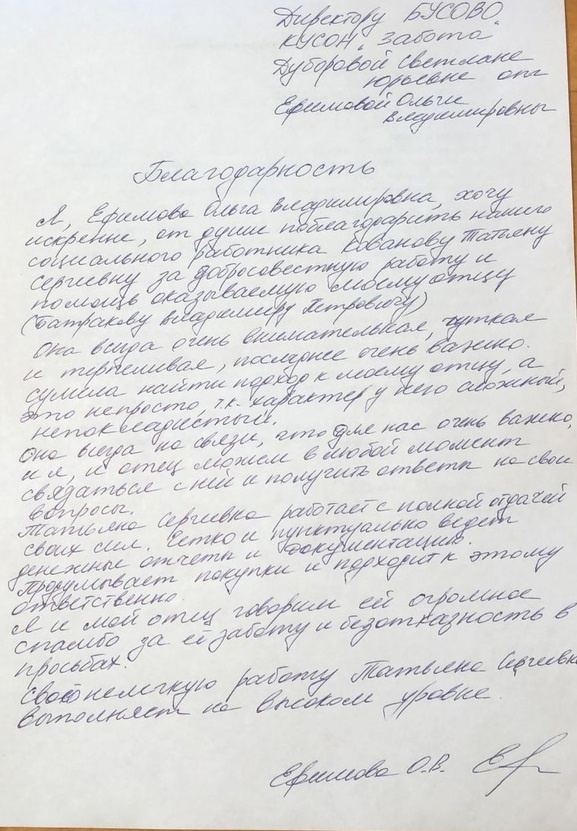 Директору БУСОВО
КЦСОН „Забота"
Дуборовой Светлане
Юрьевне от
Ефимовой Ольги
Владимировны
Благодарность
Я, Ефимова Ольга Владимировна, хочу
искренне, от души поблагодарить нашего
социального работника Татьяну
Сергеевну за добросовестную работу и
помощь оказываемую моему отцу
(Батракову Владимиру Петровичу)
Она всегда очень внимательная, чуткая
и терпеливая, последнее очень важно.
сумела найти подход к моему отцу, а
это непросто, т.к. характер у него сложный,
непокладистый.
Она всегда на связи, что для нас очень важно,
и я, и отец можем в любой момент
связаться с ней и получить ответы на свои
вопросы.
Татьяна Сергеевна работает с полной отдачей
своих сил. Четко и пунктуально ведет
денежные отчеты и документацию.
Продумывает покупки и подходит к этому
ответственно.
Я и мой отец говорим ей огромное
спасибо за её заботу и безотказность в
просьбах.
Свою нелегкую работу Татьяна Сергеевна
выполняет на высоком уровне.
Ефимова О.В.